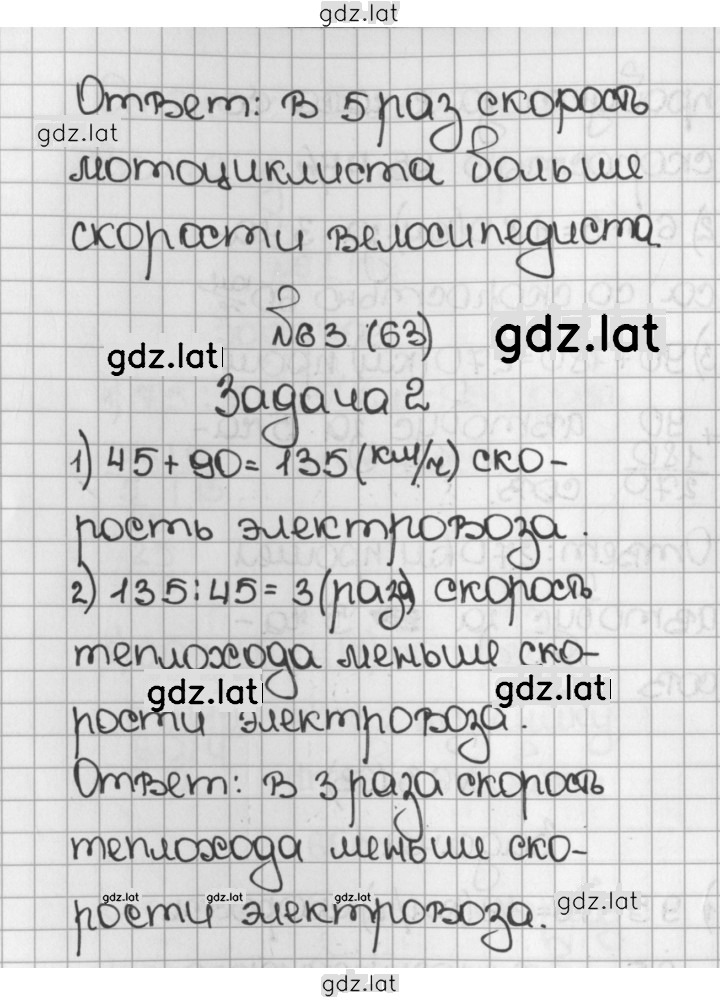 gdz.lat
Ответ: в 5 раз скорость
gdz.lat
мотоциклиста больше
скорости велосипедиста
№63 (63)
gdz.lat
gdz.lat
Задача 2
1) 45+90=135(км/ч) ско-
рость электровоза.
2) 135:45=3(раза) скорость
теплохода меньше ско-
gdz.lat
gdz.lat
рости электровоза.
Ответ: в 3 раза скорость
теплохода меньше ско-
gdz.lat gdz.lat gdz.lat gdz.lat
рости электровоза.
gdz.lat